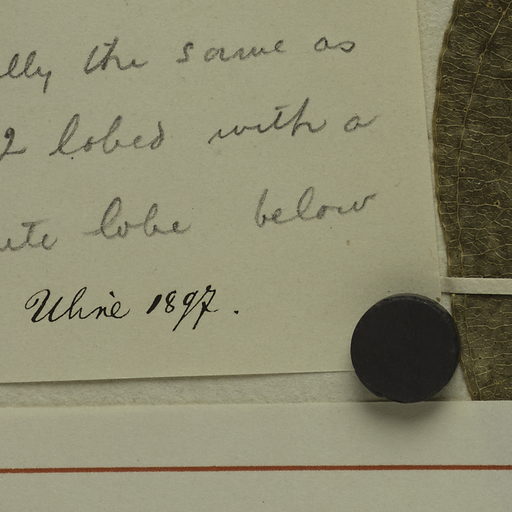 lly the same as
2 lobed with a
ute lobe below
Uline 1897.